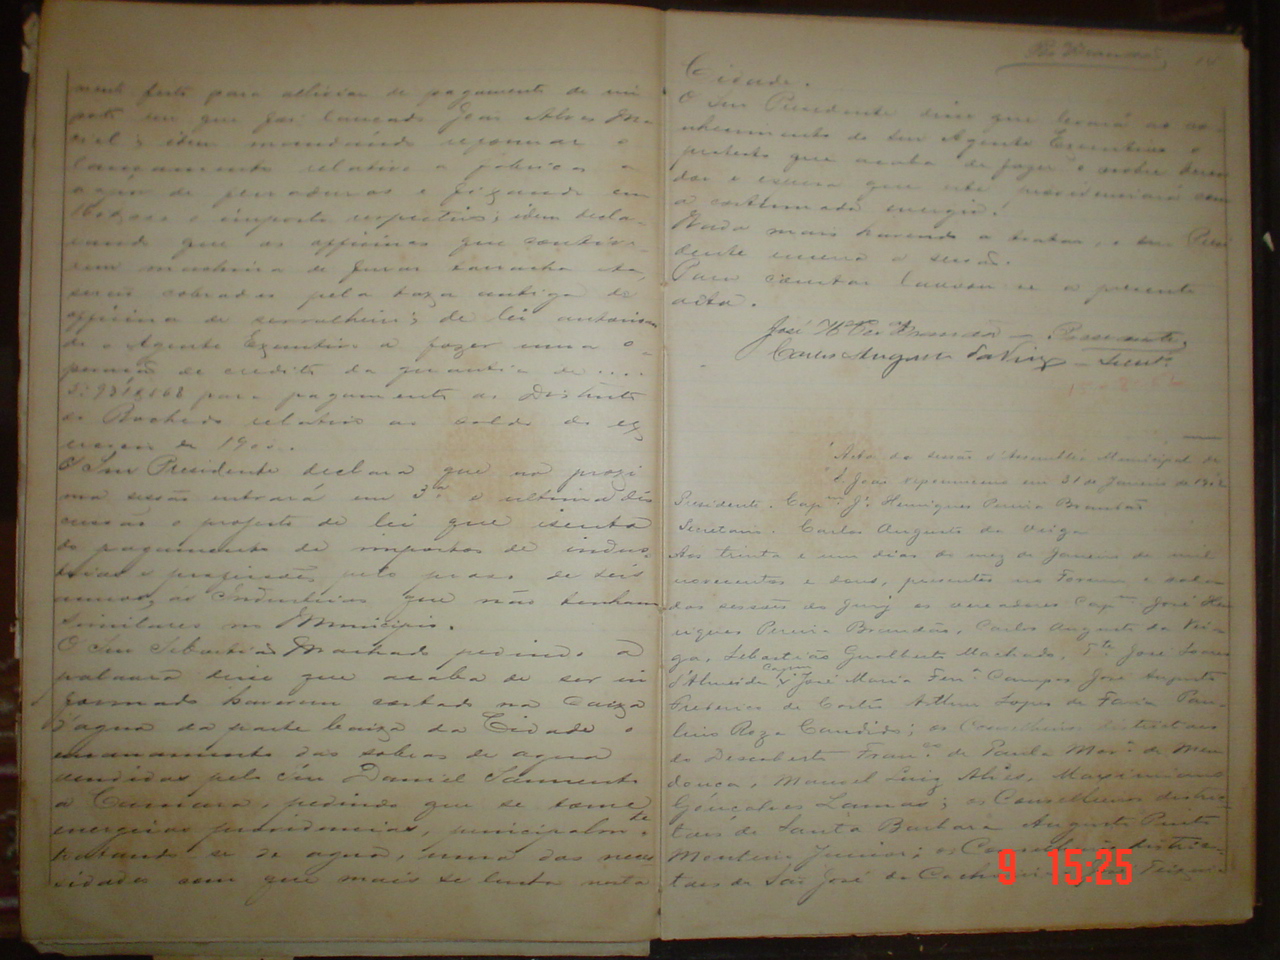 mente feito para alliviar de pagamento de im
posto em que foi lançado José Alves Ma
ciel; idem mandando reformar o
lançamento relativo a fabrica a
agoa de ferraduras e fixando em
o imposto respectivo; idem decla-
rando que as officinas que contive-
rem machina de furar borracha etc,
serão cobrados pela taxa antiga de
officina de serralheiro; de lei autorisan
do o Agente Executivo a fazer uma o-
peração de credito da quantia de ....
para pagamento ao Districto
do Rochedo relativo ao saldo do ex
ercicio de 1900.
O Snr Presidente declara que na proxi
ma sessão entrará em 3ª e ultima dis
cussão o projecto de lei que isenta
do pagamento de impostos de indus
trias e profissões, pelo praso de seis
annos, as Industrias que não tenham
similares no Municipio.
O Snr Sebastião Machado pedindo a
palavra disse que acaba de ser in
formado haverem cortado na Caixa
d'agua da parte baixa da Cidade o
encanamento das sobras de agua
vendidas pelo Snr Daniel Sarmento
a Camara, pedindo que se tome
energicas providencias, principalmte
tratando-se de agua, uma das neces
sidades sem que mais se lucta nesta
14
Cidade.
O Snr Presidente disse que levará ao co-
nhecimento do Snr Agente Executivo o
protesto que acaba de fazer o nobre verea
dor e espera que este providenciará com
a costumada energia.
Nada mais havendo a tratar, o Snr Presi
dente encerra a sessão.
Para constar lavrou-se a presente
acta.
José Hes Pera Brandão — Presidente,
Carlos Augusto da Veiga — Secretº
Acta da sessão d'Assemblea Municipal de
S. João Nepomuceno em 31 de Janeiro de 1902
Presidente. Capm Jé Henriques Pereira Brandão
Secretario. Carlos Augusto da Veiga
Aos trinta e um dias do mez de Janeiro de mil
novecentos e dous, presentes no Forum, e salas
das sessões do Jury os vereadores Capm José Hen
riques Pereira Brandão, Carlos Augusto da Vei-
ga, Sebastião Gualberto Machado, Te José Soares
d'Almeida, Capm José Maria Fera Campos José Augusto
Frederico de Castro Arthur Lopes de Faria Pau-
lino Roza Candido; os Conselheiros districtaes
do Descoberto Franco de Paula Mora de Men
donça, Manoel Luiz Alves, Maximiano
Gonçalves Lamas; os Conselheiros distric-
taes de Santa Barbara Augusto Pinto
Monteiro Junior; os Conselheiros distric-
taes de São José da Cachoeira Teixei
9 15:25